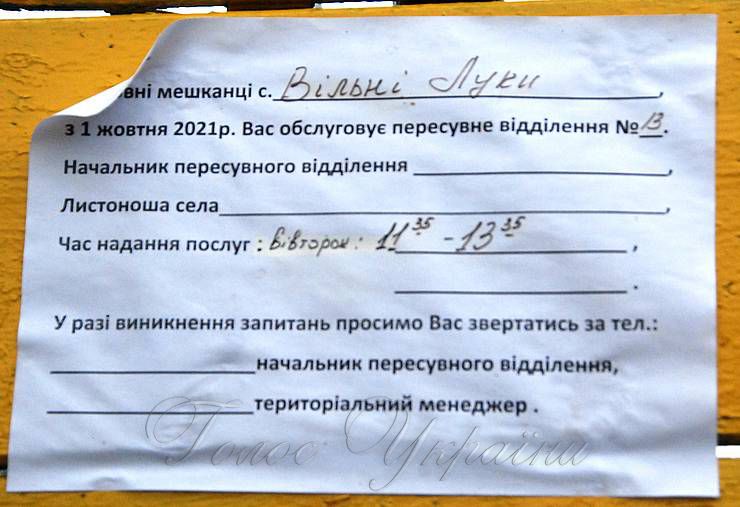 вні мешканці с. Вільні Луки,
з 1 жовтня 2021р. Вас обслуговує пересувне відділення № 13.
Начальник пересувного відділення ____________,
Листоноша села____________,
Час надання послуг : Вівторок: 11 35 - 13 35,
____________.
У разі виникнення запитань просимо Вас звертатись за тел.:
____________начальник пересувного відділення,
____________територіальний менеджер .
Голос України